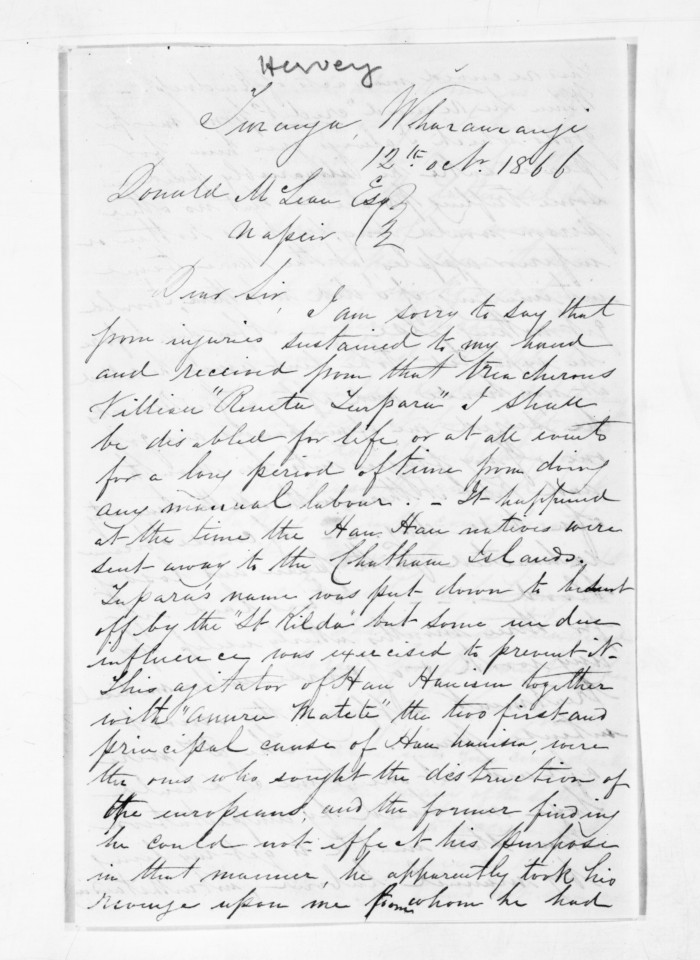 Hervey
Turanga, Wharaurangi
12th octr. 1866
Donald McLean Esqr
Napeir
Dear Sir, I am sorry to say that
from injuries sustained to my hand
and received from that treacherous
Villian "Reneta Turpara" I shall
be disabled for life or at all events
for a long period of time from doing
any manual labour. - It happened
at the time the Hau Hau natives were
sent away to the Chatham Islands.
Tupara's name was put down to be sent
off by the "St Kilda" but some undue
influence was exercised to prevent it -
This agitator of Hau Hauism together
with "Anuru Matete" the two first and
principal cause of Hau hauism, were
the ones who sought the destruction of
the europeans, and the former finding
he could not effect his purpose
in that manner, he apparently took his
revenge upon me from whom he had